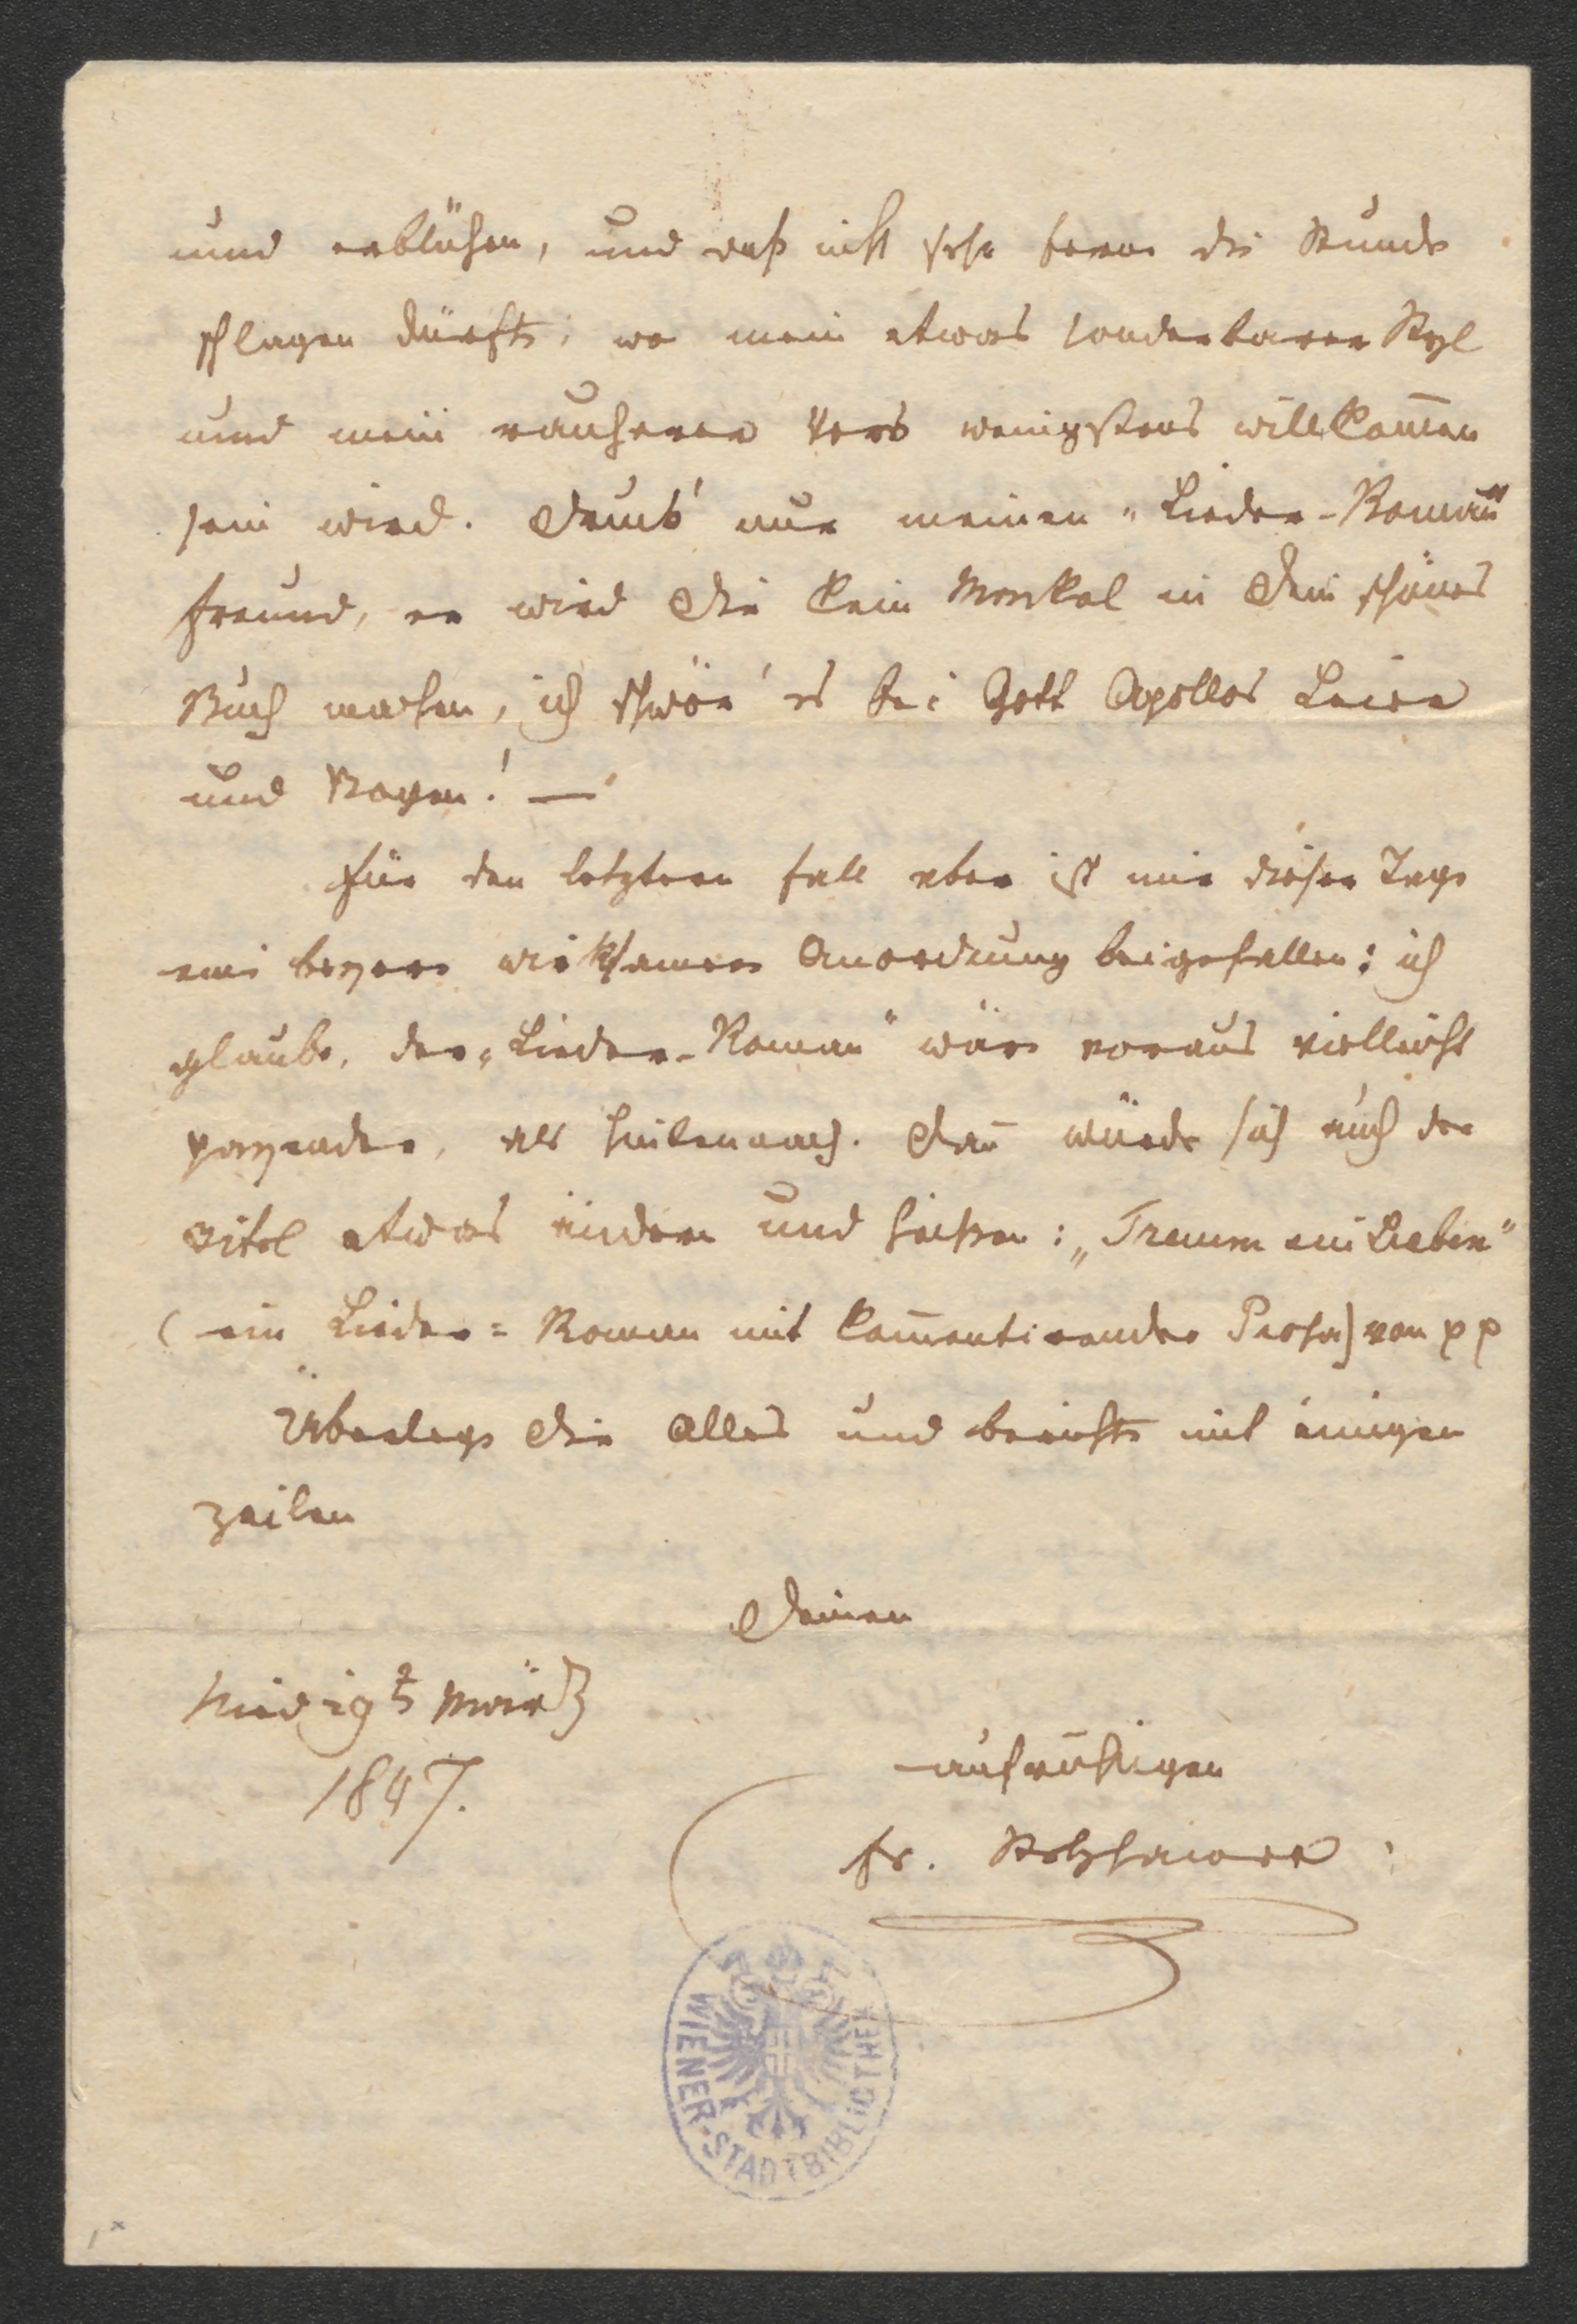 und erblühen, und daß nicht sehr ferne die Stunde
schlagen dürfte, wo mein etwas sonderbarer Styl
und mein rauherer Vers wenigstens willkom̅en
sein wird. Druck' nur meinen „Lieder-Roman“
Freund, er wird Dir kein Mackel in Dein schönes
Buch machen, ich schwör' es bei Gott Apollos Leier
und Bogen! —
Für den letztern Fall aber ist mir dieser Tage
eine beßere wirksamere Anordnung beigefallen: ich
glaube, der „Lieder-Roman“ wäre voraus vielleicht
paßender, als hintennach. Dan̅ würde sich auch der
Titel etwas ändern und heißen: „Traum ein Leben“
(ein Lieder=Roman mit kom̅entirender Prosa) von pp
Überlege Dir Alles und berichte mit einigen
Zeilen
Deinen
Ried 19t März
1847.
aufrichtigen
Fr. Stelzhamer
WIENER-STADTBIBLIOTHEK